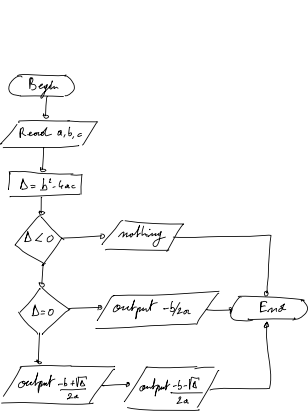 Begin
Read a,b,c
Δ= b²-4ac
Δ<0
nothing
Δ=0
output -b/2a
End
output -b+√Δ/2a
output -b-√Δ/2a